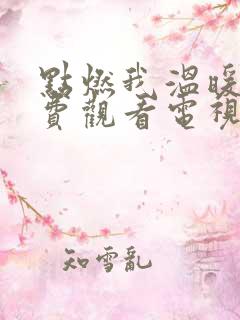 點燃我溫暖
費觀看電視
知雪亂